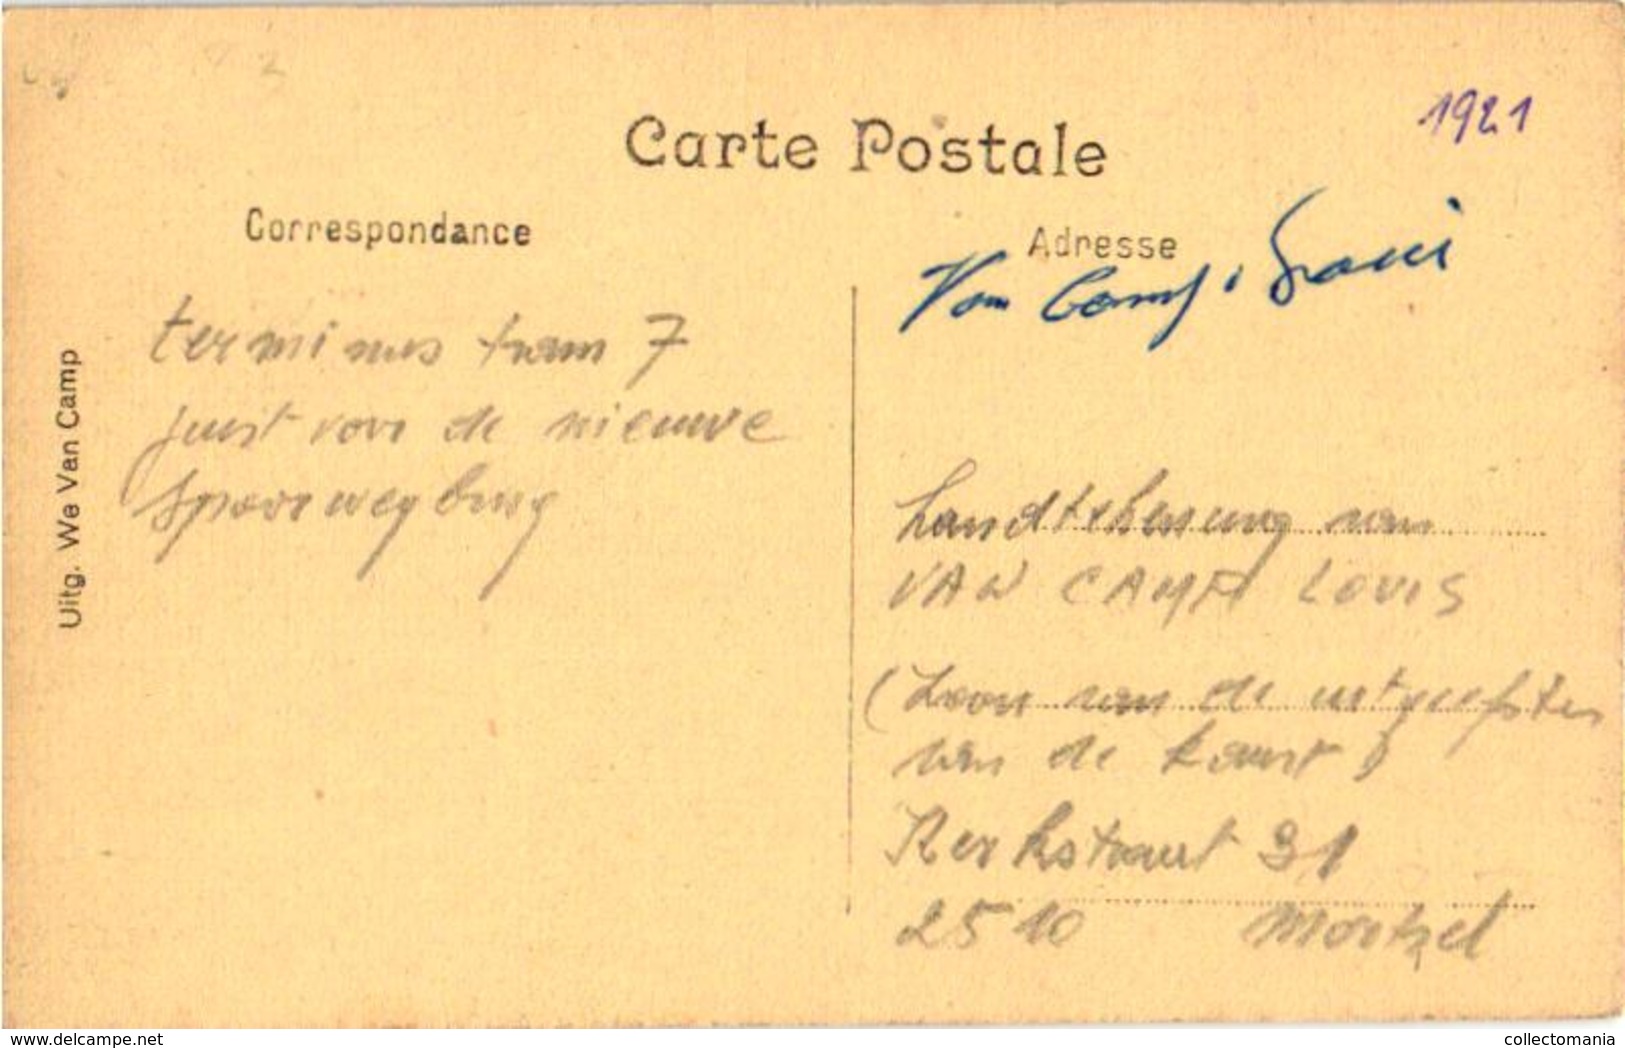 1921
Carte Postale
Correspondance
Adresse
Van Camp
terminus tram 7
juist voor de nieuwe
spoorwegbrug
Uitg. We Van Camp
van
VAN CAMP LOUIS
(zoon van de uitgeefster
van de kaart)
Kerkstraat 31
2510 Mortsel
delcampe.net
collectomania